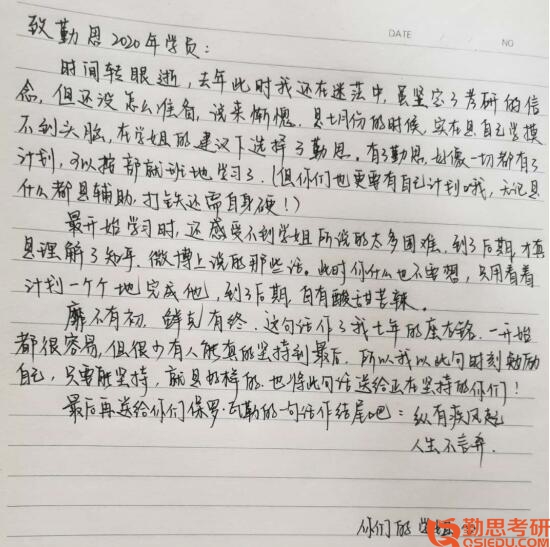 DATE / / NO
致勤思2020年学员：
时间转眼逝，去年此时我还在迷茫中，虽坚定了考研的信
念，但还没怎么准备，说来惭愧，是七月份的时候，实在是自己学摸
不到头脑，在学姐的建议下选择了勤思。有了勤思，好像一切都有了
计划，可以按部就班地学习了。（但你们也要要有自己计划哦，无记是
什么都是辅助，打铁还需自身硬！）
最开始学习时，还感受不到学姐所说的太多困难，到了后期，才真
是理解了知乎、微博上说的那些话。此时你什么也不要想，只用看着
计划一个个地完成他，到了后期，自有酸甜苦辣。
靡不有初，鲜克有终，这句话作了我七年的座右铭，一开始
都很容易，但很少有人能真的坚持到最后，所以我以此句时刻勉励
自己，只要能坚持，就是好样的，也将此句话送给正在坚持的你们！
最后再送给你们保罗·瓦勒的一句话作结尾吧：纵有疾风起
人生不言弃.
你们的学姐
勤思考研
QSIEDU.COM